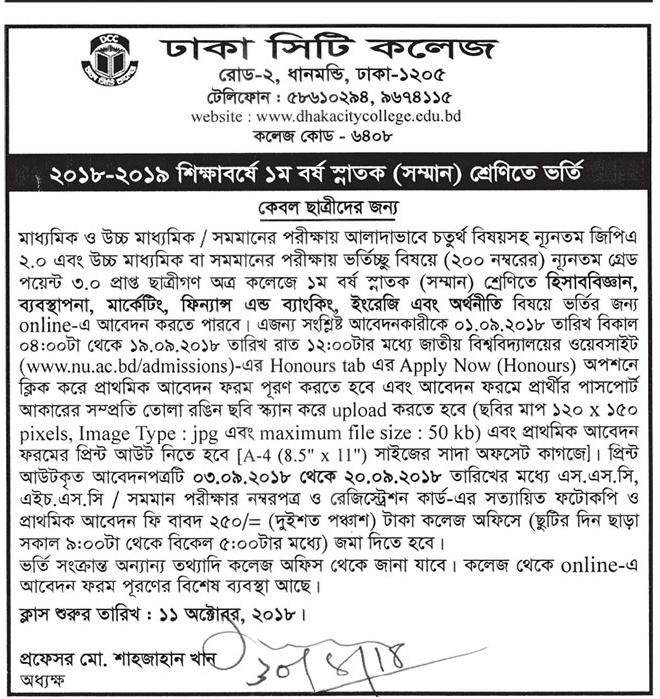 DCC
ঢাকা সিটি কলেজ
রোড-২, ধানমন্ডি, ঢাকা-১২০৫
টেলিফোন : ৫৮৬১০২৯৪, ৯৬৭৪১১৫
website : www.dhakacitycollege.edu.bd
কলেজ কোড - ৬৪০৮
২০১৮-২০১৯ শিক্ষাবর্ষে ১ম বর্ষ স্নাতক (সম্মান) শ্রেণিতে ভর্তি
কেবল ছাত্রীদের জন্য
মাধ্যমিক ও উচ্চ মাধ্যমিক / সমমানের পরীক্ষায় আলাদাভাবে চতুর্থ বিষয়সহ ন্যূনতম জিপিএ
২.০ এবং উচ্চ মাধ্যমিক বা সমমানের পরীক্ষায় ভর্তিচ্ছু বিষয়ে (২০০ নম্বরের) ন্যূনতম গ্রেড
পয়েন্ট ৩.০ প্রাপ্ত ছাত্রীগণ অত্র কলেজে ১ম বর্ষ স্নাতক (সম্মান) শ্রেণিতে হিসাববিজ্ঞান,
ব্যবস্থাপনা, মার্কেটিং, ফিন্যান্স এন্ড ব্যাংকিং, ইংরেজি এবং অর্থনীতি বিষয়ে ভর্তির জন্য
online-এ আবেদন করতে পারবে। এজন্য সংশ্লিষ্ট আবেদনকারীকে ০১.০৯.২০১৮ তারিখ বিকাল
০৪:০০টা থেকে ১৯.০৯.২০১৮ তারিখ রাত ১২:০০টার মধ্যে জাতীয় বিশ্ববিদ্যালয়ের ওয়েবসাইট
(www.nu.ac.bd/admissions)-এর Honours tab এর Apply Now (Honours) অপশনে
ক্লিক করে প্রাথমিক আবেদন ফরম পূরণ করতে হবে এবং আবেদন ফরমে প্রার্থীর পাসপোর্ট
আকারের সম্প্রতি তোলা রঙিন ছবি স্ক্যান করে upload করতে হবে (ছবির মাপ ১২০ x ১৫০
pixels, Image Type : jpg এবং maximum file size : 50 kb) এবং প্রাথমিক আবেদন
ফরমের প্রিন্ট আউট নিতে হবে [A-4 (8.5" x 11") সাইজের সাদা অফসেট কাগজে]। প্রিন্ট
আউটকৃত আবেদনপত্রটি ০৩.০৯.২০১৮ থেকে ২০.০৯.২০১৮ তারিখের মধ্যে এস.এস.সি,
এইচ.এস.সি / সমমান পরীক্ষার নম্বরপত্র ও রেজিস্ট্রেশন কার্ড-এর সত্যায়িত ফটোকপি ও
প্রাথমিক আবেদন ফি বাবদ ২৫০/= (দুইশত পঞ্চাশ) টাকা কলেজ অফিসে (ছুটির দিন ছাড়া
সকাল ৯:০০টা থেকে বিকেল ৫:০০টার মধ্যে) জমা দিতে হবে।
ভর্তি সংক্রান্ত অন্যান্য তথ্যাদি কলেজ অফিস থেকে জানা যাবে। কলেজ থেকে online-এ
আবেদন ফরম পূরণের বিশেষ ব্যবস্থা আছে।
ক্লাস শুরুর তারিখ : ১১ অক্টোবর, ২০১৮।
প্রফেসর মো. শাহজাহান খান
অধ্যক্ষ